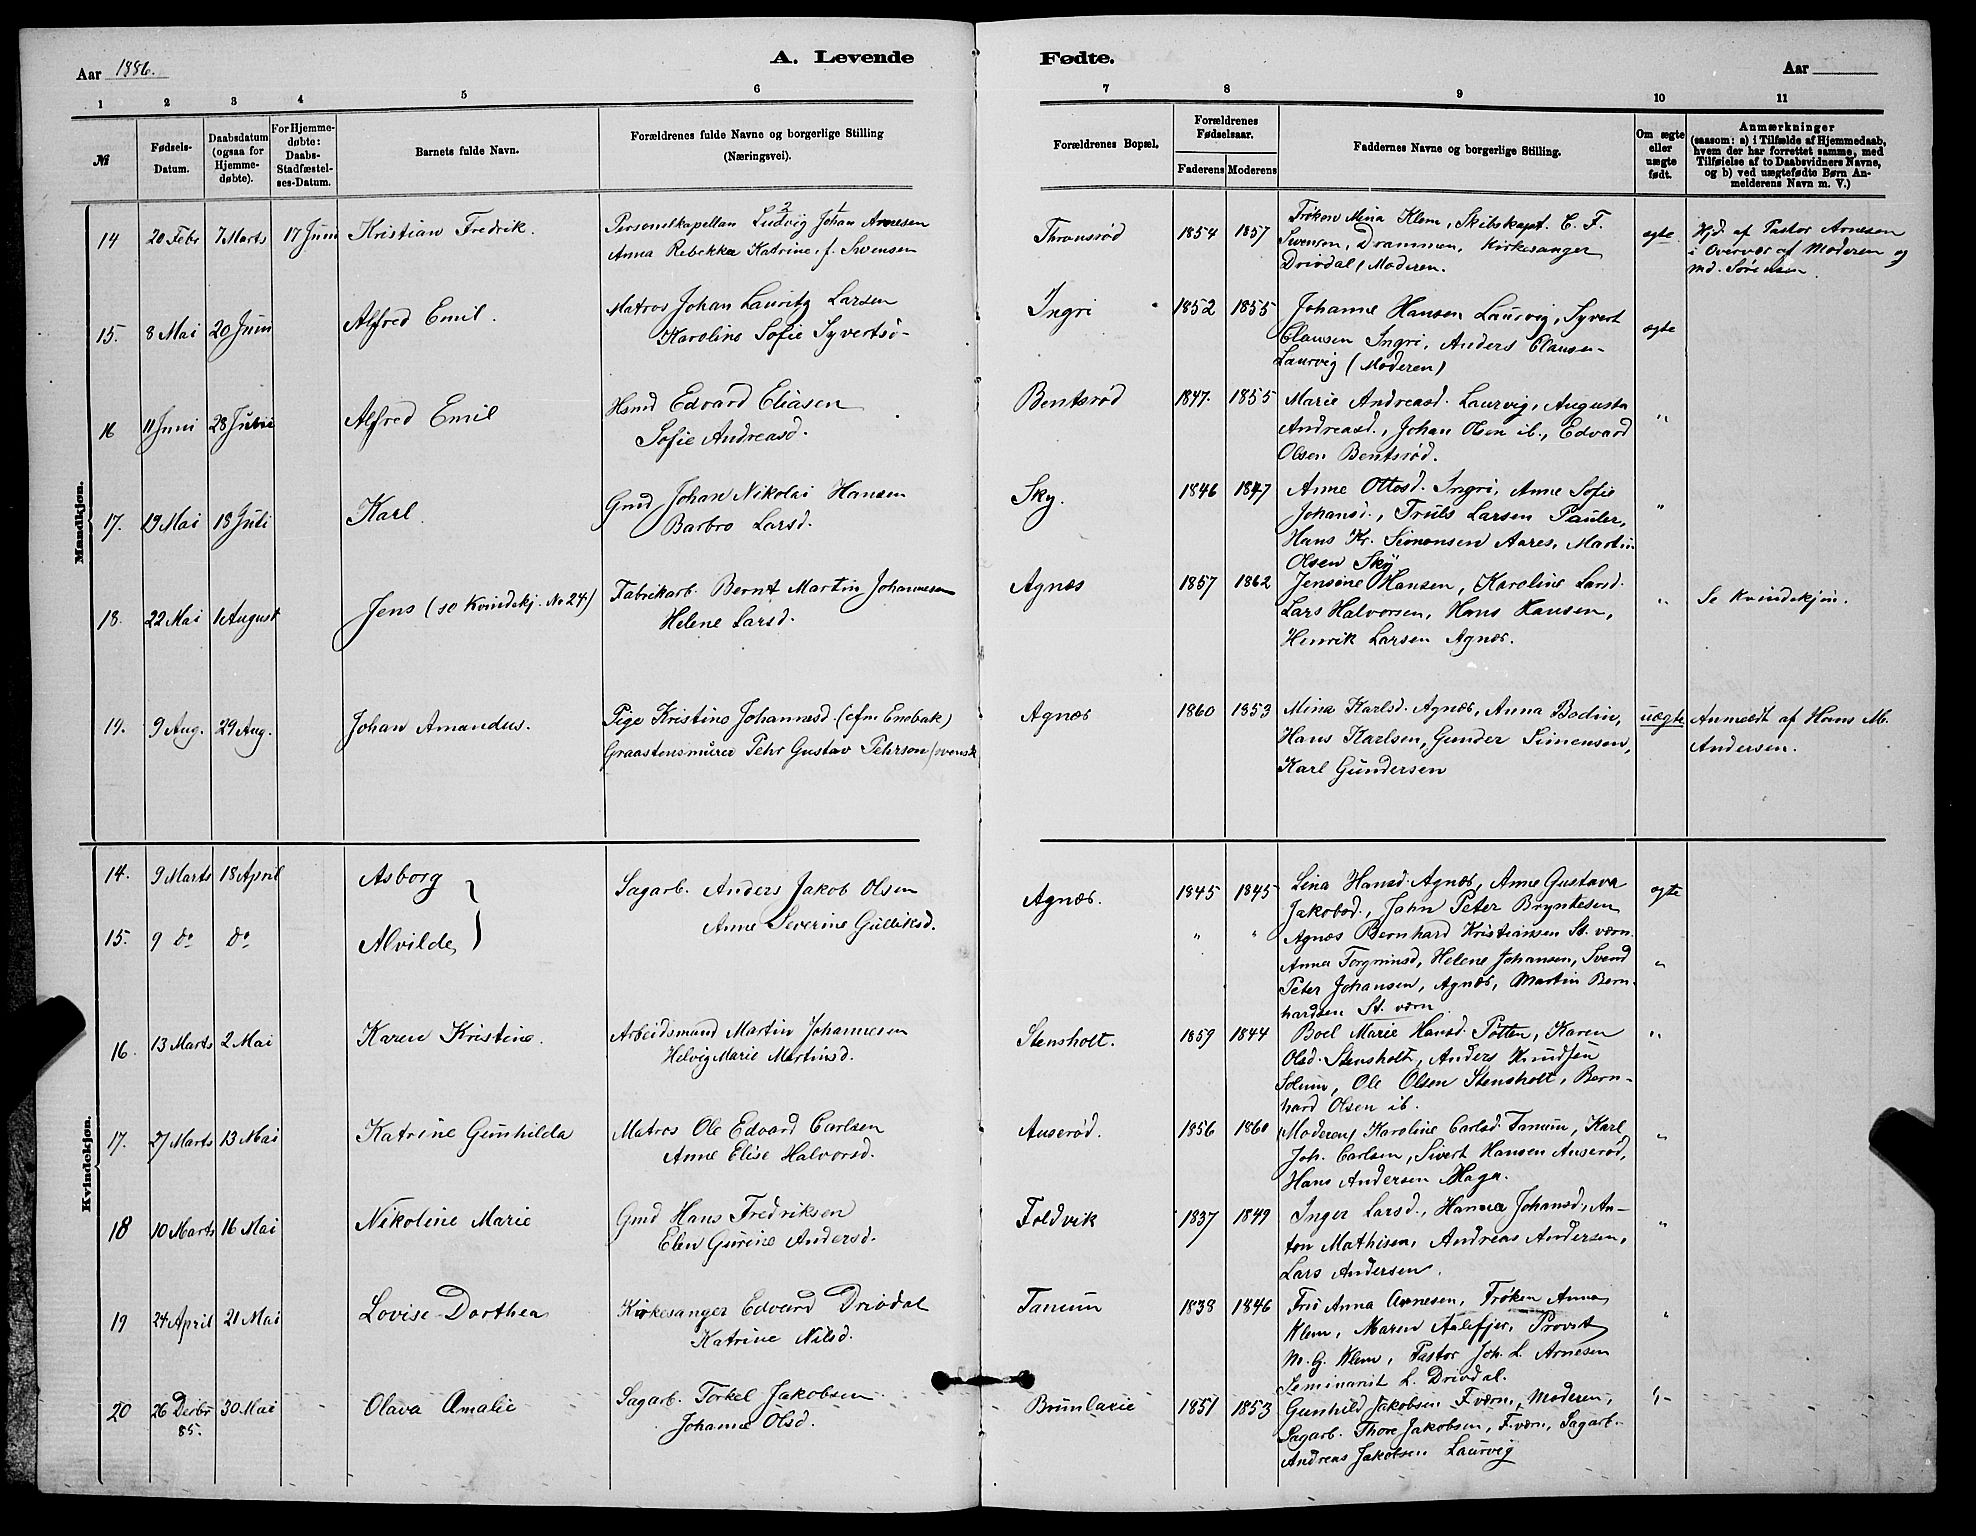 Aar 1886.
A. Levende Fødte.
Aar
1 2 3 4 5 6 7 8 9 10 11
№
Fødsels-
Datum.
Daabsdatum
(ogsaa for
Hjemme-
døbte).
For Hjemme-
døbte:
Daabs-
Stadfæstel-
ses-Datum.
Barnets fulde Navn.
Forældrenes fulde Navne og borgerlige Stilling
(Næringsvei).
Forældrenes Bopæl.
Forældrenes
Fødselsaar.
Faderens Moderens
Faddernes Navne og borgerlige Stilling.
Om ægte
eller
uægte
født.
Anmærkninger
(saasom: a) i Tilfælde af Hjemmedaab,
hvem der har forrettet samme, med
Tilføielse af to Daabsvidners Navne,
og b) ved uægtefødte Børn An-
melderens Navn m. V.)
Mandkjøn.
14 20 Febr 7 Marts 17 Juni Kristian Fredrik.
Personelkapellan Ludvig Johan Arnesen
Anna Rebekka Katrine, f. Svensen
Thronsrød 1854 1857
Frøken Mina Klem, Skibskapt. C. F.
Svensen, Drammen, Kirkesanger
Drivdal, Moderen.
ægte
Hjd. af Pastor Arnesen
i Overvær af Moderen og
Md. Sørensen.
15. 8 Mai 20 Juni Alfred Emil.
Matros Johan Lauritz Larsen
Karoline Sofie Syvertsd-
Ingri 1852 1855
Johanne Hansen Laurvig, Syvert
Clausen Ingri, Anders Clausen-
Laurvig (Moderen)
ægte
16 11 Juni 28 Juni Alfred Emil
Hsmd Edvard Eliasen
Sofie Andreasd.
Bentsrød 1847. 1855
Marie Andreasd. Laurvig, Augusta
Andreasd., Johan Olsen ib., Edvard
Olsen Bentsrød.
"
17. 19 Mai 18 Juli Karl.
Gmd Johan Nikolai Hansen
Barbro Larsd.
Sky. 1846 1847
Anne Ottosd. Ingri, Anne Sofie
Johansd., Truls Larsen Pauler,
Hans Kr. Simonsen Aares, Martin
Olsen Sky
"
18. 22 Mai 1 August Jens (se Kvindekj. No 24)
Fabrikarb. Bernt Martin Johannesen
Helene Larsd.
Agnæs 1857 1862
Jensine Hansen, Karoline Larsd.
Lars Halvorsen, Hans Hansen,
Henrik Larsen Agnæs.
"
Se Kvindekjøn.
19. 9 Aug. 29 Aug. Johan Amandus.
Pige Kristine Johannesd. (efm Enebak)
Graastensmurer Pehr Gustav Pehrson (svensk
Agnæs 1860 1853
Mina Karlsd. Agnæs, Anna Bodin,
Hans Karlsen, Gunder Simensen,
Karl Gundersen
uægte
Anmeldt af Hans M.
Andersen.
Kvindekjøn.
14. 9 Marts 18 April Asborg
15. 9 do do Alvilde
Sagarb. Anders Jakob Olsen
Anne Severine Gulliksd.
Agnæs. 1845 1845
" "
Lina Hansd. Agnæs, Anne Gustava
Jakobsd., John Peter Bryntesen
Agnæs Bernhard Kristiansen St. værn.
Anna Torgrimsd, Helene Johansen, Svend
Peter Johansen, Agnæs, Martin Bern-
hardsen St. værn
ægte
"
16. 13 Marts 2 Mai Karen Kristine.
Arbeidsmand Martin Johannesen
Helvig Marie Martinsd.
Stensholt. 1859 1844
Boel Marie Hansd. Potten, Karen
Olsd. Stensholt, Anders Knudsen
Solum, Ole Olsen Stensholt, Bern-
hard Olsen ib.
"
17. 27 Marts 13 Mai Katrine Gunhilda
Matros Ole Edvard Carlsen
Anne Elise Halvorsd.
Auserød. 1856 1860
(Moderen) Karoline Carlsd. Tanum, Karl
Joh. Carlsen, Sivert Hansen Auserød,
Hans Andersen Haga.
"
18 10 Marts 16 Mai Nikoline Marie
Gmd Hans Fredriksen
Elen Gurine Andersd.
Foldvik 1837 1849
Inger Larsd., Hanna Johansd, An-
ton Mathisen, Andreas Andersen,
Lars Andersen.
"
19 24 April 21 Mai Lovise Dorthea
Kirkesanger Edvard Drivdal
Katrine Nilsd.
Tanum 1838 1846
Fru Anna Arnesen, Frøken Anna
Klem, Maren Aalefjer, Provst
M. G. Klem, Pastor Joh. L. Arnesen
Seminarist L. Drivdal.
"
20 26 Decbr 85. 30 Mai Olava Amalie
Sagarb. Torkel Jakobsen
Johanne Olsd.
Brunlanæ 1851 1853
Gunhild Jakobsen F.værn, Moderen,
Sagarb. Thore Jakobsen, F.værn, Sagarb.
Andreas Jakobsen Laurvig
"-